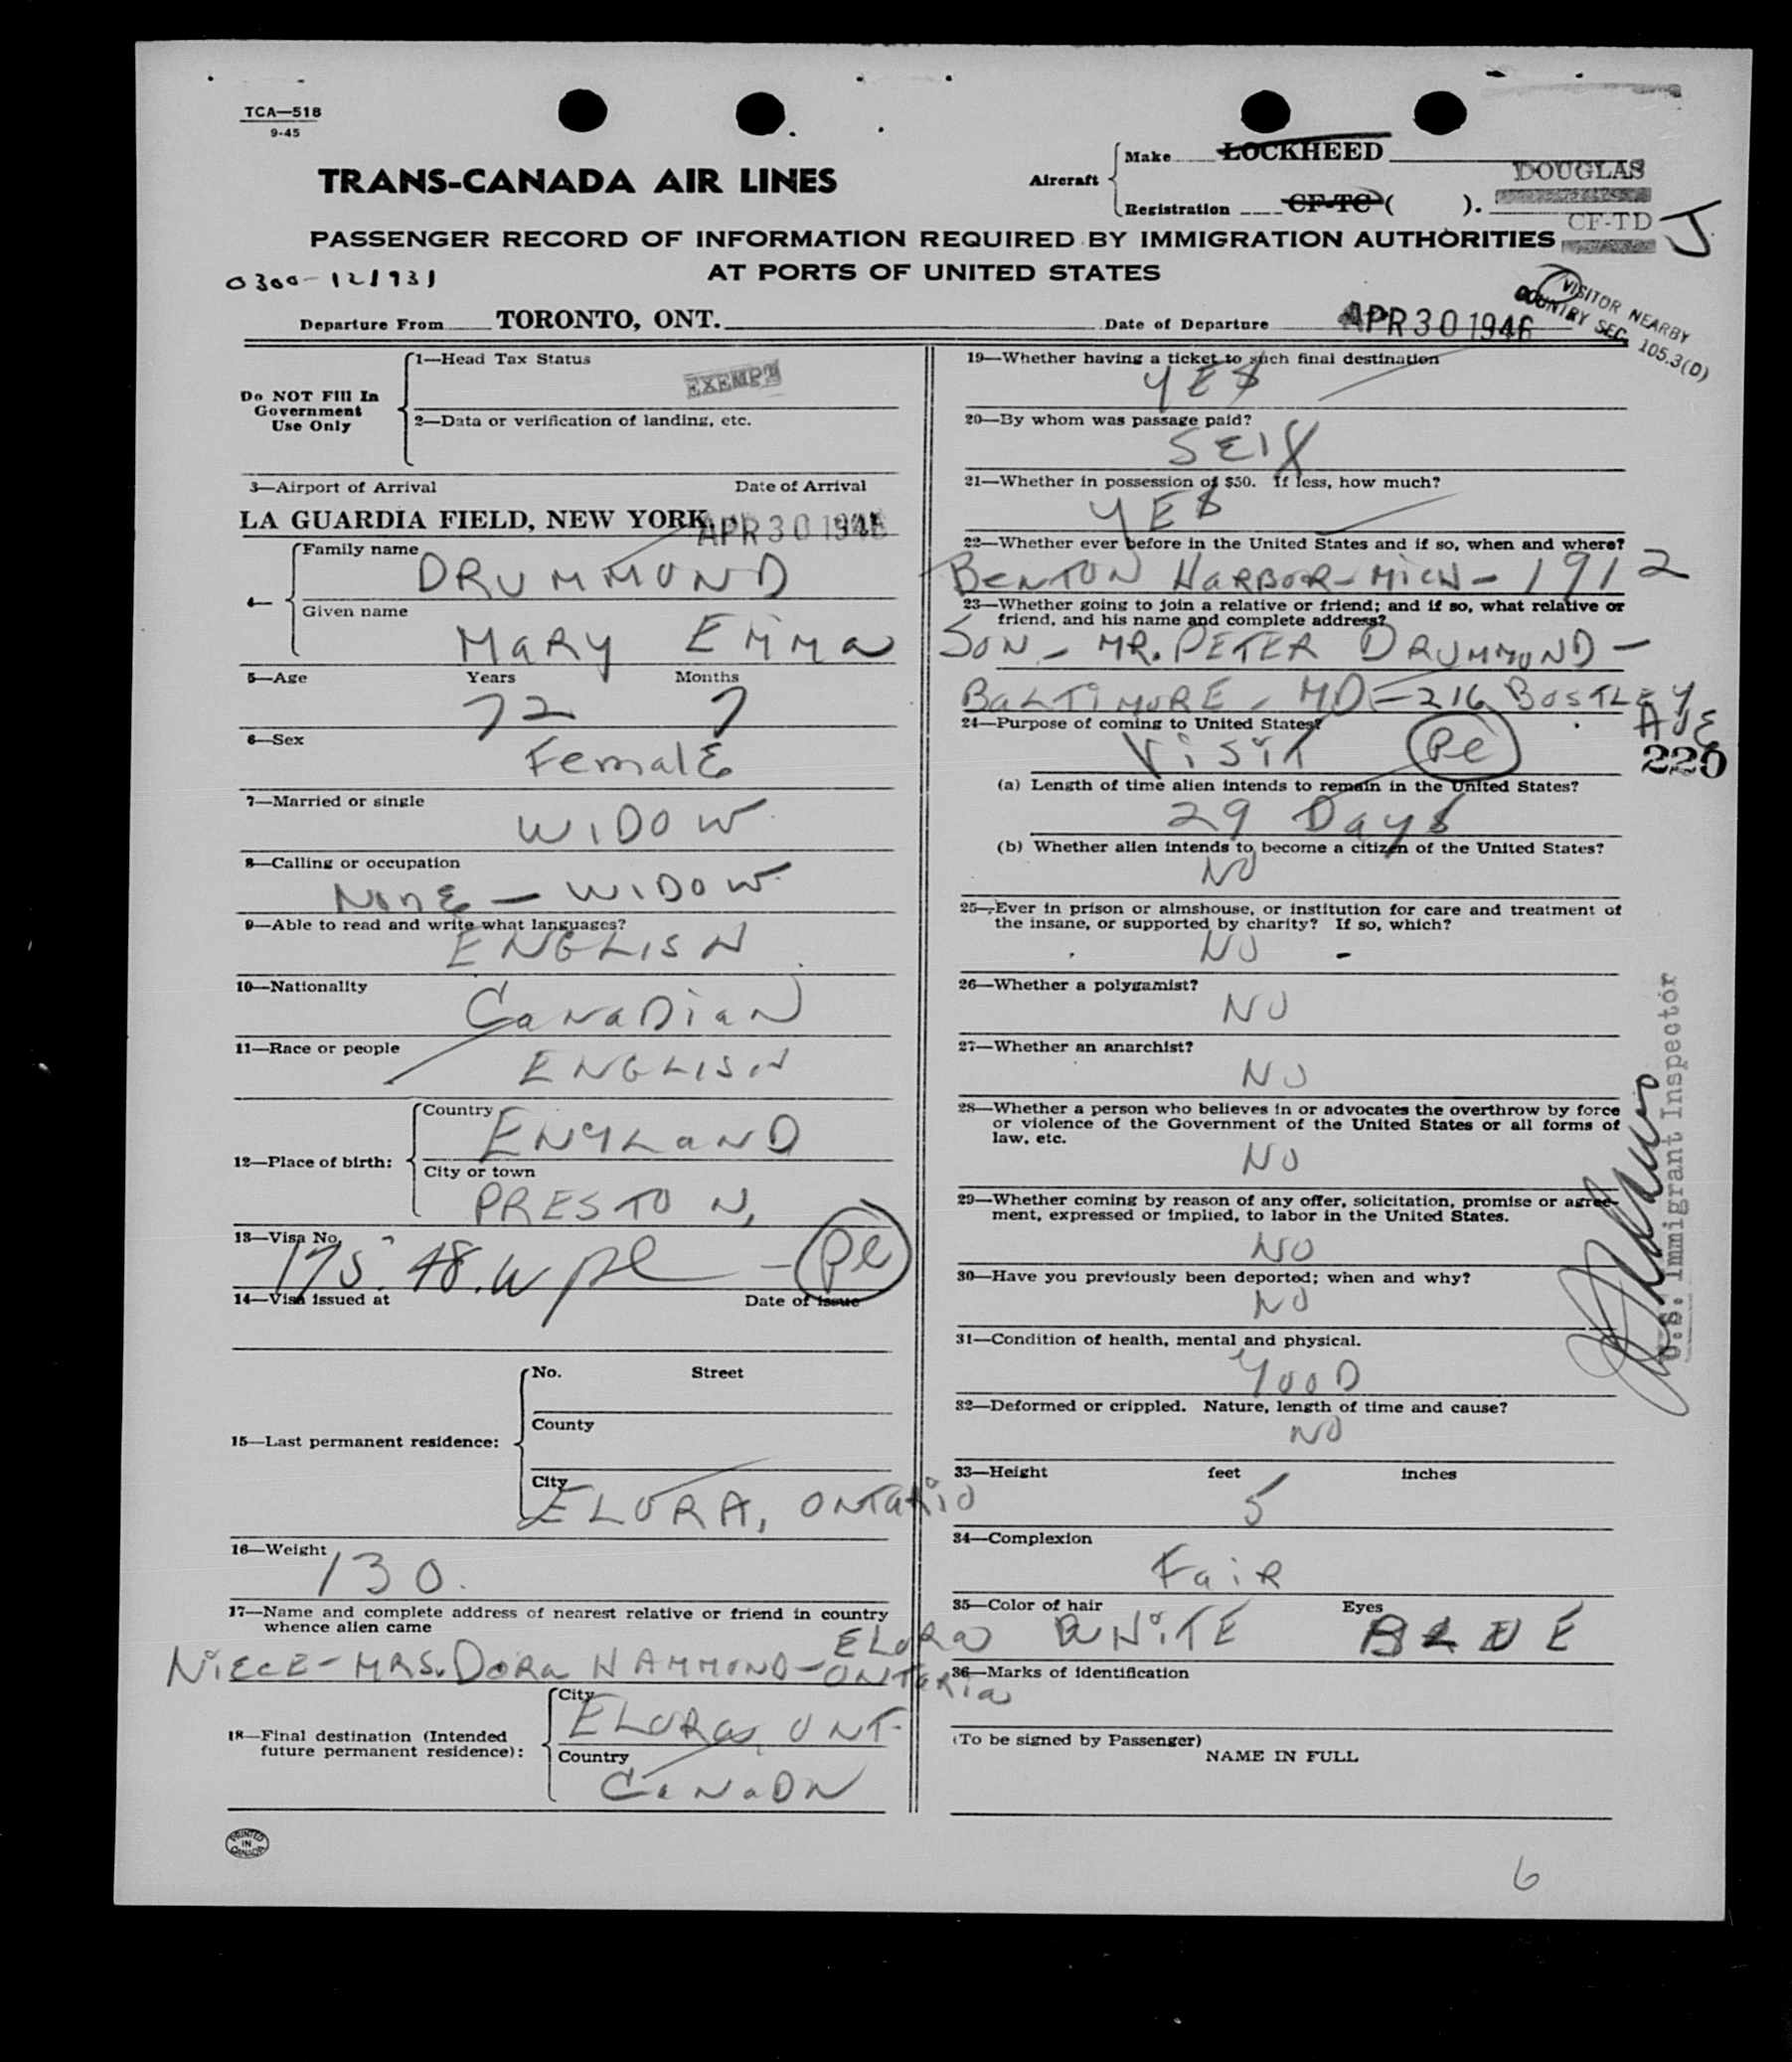 TCA—518
9-45
TRANS-CANADA AIR LINES
Aircraft
Make LOCKHEED
DOUGLAS
Registration CF-TC ( ).
CF-TD J
PASSENGER RECORD OF INFORMATION REQUIRED BY IMMIGRATION AUTHORITIES
AT PORTS OF UNITED STATES
0300-121931
VISITOR NEARBY
COUNTRY SEC. 105.3(D)
Departure From TORONTO, ONT.
Date of Departure APR 30 1946
Do NOT Fill In
Government
Use Only
1—Head Tax Status
EXEMPT
2—Data or verification of landing, etc.
3—Airport of Arrival Date of Arrival
LA GUARDIA FIELD, NEW YORK APR 30 1946
4—
Family name
DRUMMOND
Given name
MARY EMMA
5—Age Years Months
72 7
6—Sex
FEMALE
7—Married or single
WIDOW
8—Calling or occupation
NONE — WIDOW
9—Able to read and write what languages?
ENGLISH
10—Nationality
CANADIAN
11—Race or people
ENGLISH
12—Place of birth:
Country
ENGLAND
City or town
PRESTON
13—Visa No.
175. 48. W PE
14—Visa issued at Date of issue
15—Last permanent residence:
No. Street
County
City
ELORA, ONTARIO
16—Weight
130.
17—Name and complete address of nearest relative or friend in country
whence alien came
NIECE - MRS. DORA HAMMOND - ELORA
ONTARIO
18—Final destination (Intended
future permanent residence):
City
ELORA, ONT.
Country
CANADA
PRINTED
IN
CANADA
19—Whether having a ticket to such final destination
YES
20—By whom was passage paid?
SELF
21—Whether in possession of $50. If less, how much?
YES
22—Whether ever before in the United States and if so, when and where?
BENTON HARBOR - MICH - 1912
23—Whether going to join a relative or friend; and if so, what relative or
friend, and his name and complete address?
SON - MR. PETER DRUMMOND -
BALTIMORE - MD - 216 BOSTLEY
AVE
24—Purpose of coming to United States?
VISIT PE
220
(a) Length of time alien intends to remain in the United States?
29 DAYS
(b) Whether alien intends to become a citizen of the United States?
NO
25—Ever in prison or almshouse, or institution for care and treatment of
the insane, or supported by charity? If so, which?
NO -
26—Whether a polygamist?
NO
27—Whether an anarchist?
NO
28—Whether a person who believes in or advocates the overthrow by force
or violence of the Government of the United States or all forms of
law, etc.
NO
29—Whether coming by reason of any offer, solicitation, promise or agree-
ment, expressed or implied, to labor in the United States.
NO
30—Have you previously been deported; when and why?
NO
31—Condition of health, mental and physical.
GOOD
32—Deformed or crippled. Nature, length of time and cause?
NO
33—Height feet inches
5
34—Complexion
FAIR
35—Color of hair Eyes
WHITE BLUE
36—Marks of identification
(To be signed by Passenger)
NAME IN FULL
U.S. Immigrant Inspector
6